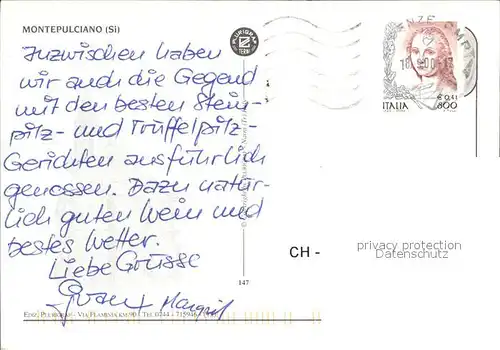 MONTEPULCIANO (Si)
PLURIGRAF
TERNI
Inzwischen haben
wir auch die Gegend
mit den besten Stein-
pilz- und Trüffelpilz-
Gerichten ausführlich
genossen. Dazu natür-
lich guten Wein und
bestes Wetter.
Liebe Grüsse
Margrit
ITALIA
€ 0,41
800
CH -
privacy protection
Datenschutz
147
EDIZ. PLURIGRAF - VIA FLAMINIA KM. 90 - TEL. 0744 - 715946